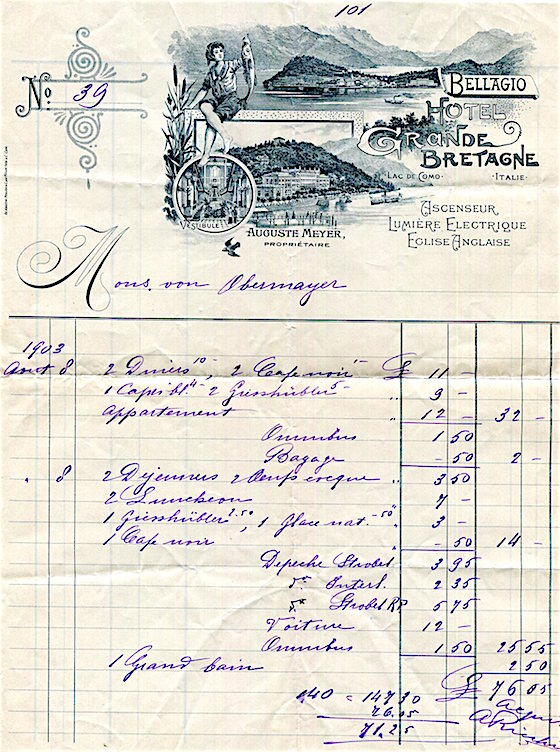 101
No. 39
BELLAGIO
HOTEL
GRANDE
BRETAGNE
LAC DE COMO · ITALIE
VESTIBULE
AUGUSTE MEYER,
PROPRIÉTAIRE
ASCENSEUR
LUMIÈRE ELECTRIQUE
EGLISE ANGLAISE
Mons. von Obermayer
1903
Aout 8 2 Diners 10-, 2 Cafe noir 1- £ 11 -
1 4- 2 Giesshübler 5- " 9 -
Appartement " 12 - 32 -
Omnibus 1 50
Bagage - 50 2 -
" 8 2 Dejeuners 2 Oeufs cocque " 3 50
2 Luncheon " 7 -
1 Giesshübler 2.50, 1 Glace nat. -50 " 3 -
1 Cafe noir " - 50 14 -
Depeche Strobel 3 95
do Interl. 2 35
do Strobel RP 5 75
Voiture 12 -
Omnibus 1 50 25 55
1 Grand bain 2 50
£ 76 05
140 = 147 30
76.05
71.25